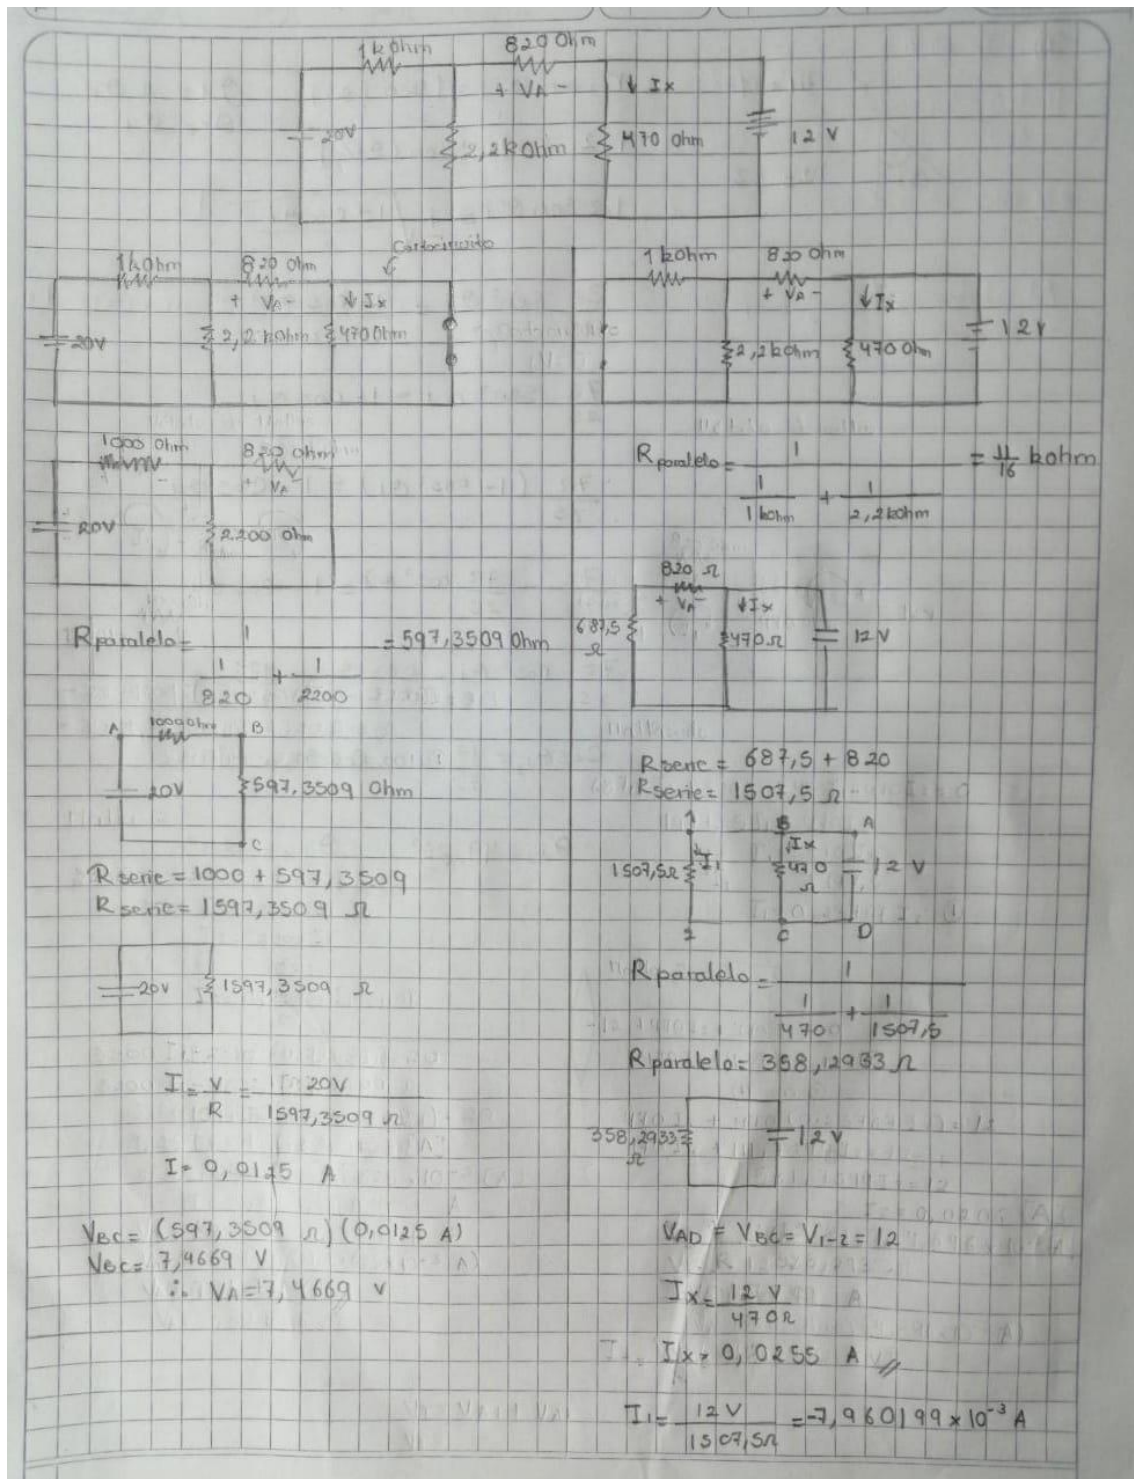 1k Ohm
820 Ohm
+ VA -
↓ Ix
20V
2,2k Ohm
470 Ohm
12 V
Cortocircuito
1k Ohm
820 Ohm
+ VA -
↓ Ix
20V
2,2 kOhm
470 Ohm
1000 Ohm
820 Ohm
+ VA -
20V
2200 Ohm
Rparalelo = 1 / (1/820 + 1/2200) = 597,3509 Ohm
A
1000 Ohm
B
20V
597,3509 Ohm
C
Rserie = 1000 + 597,3509
Rserie = 1597,3509 Ω
20V
1597,3509 Ω
I1 = V/R = 20V / 1597,3509 Ω
I = 0,0125 A
VBC = (597,3509 Ω) (0,0125 A)
VBC = 7,4669 V
∴ VA = 7,4669 V
1 kOhm
820 Ohm
+ VA -
↓ Ix
2,2kOhm
470 Ohm
12V
Rparalelo = 1 / (1/1 kohm + 1/2,2kohm) = 11/16 kohm
820 Ω
+ VA -
↓ Ix
687,5 Ω
470Ω
12 V
Rserie = 687,5 + 820
Rserie = 1507,5 Ω
1
B
A
1507,5Ω
↓ I1
↓ Ix
470 Ω
12 V
2
C
D
Rparalelo = 1 / (1/470 + 1/1507,5)
Rparalelo = 358,12933 Ω
358,2933 Ω
12 V
VAD = VBC = V1-2 = 12
Ix = 12 V / 470Ω
Ix = 0,0255 A //
I1 = 12V / 1507,5Ω = -7,960199 x 10⁻³ A